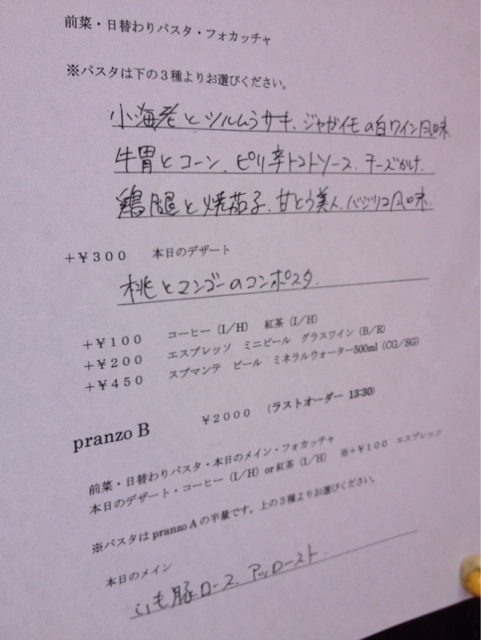 前菜・日替わりパスタ・フォカッチャ
※パスタは下の3種よりお選びください。
小海老とツルムラサキ、ジャガイモの白ワイン風味
牛胃とコーン、ピリ辛トマトソース、チーズかけ
鶏腿と焼茄子、甘とう美人、バジリコ風味
+¥300 本日のデザート
桃とマンゴーのコンポスタ
+¥100 コーヒー(I/H) 紅茶(I/H)
+¥200 エスプレッソ ミニビール グラスワイン(B/R)
+¥450 スプマンテ ビール ミネラルウォーター500ml(CG/SG)
pranzo B ¥2000 (ラストオーダー 13:30)
前菜・日替わりパスタ・本日のメイン・フォカッチャ
本日のデザート・コーヒー(I/H)or紅茶(I/H) ※+¥100 エスプレッソ
※パスタは pranzo A の半量です。上の3種よりお選びください。
本日のメイン
豚ロース、アッロースト